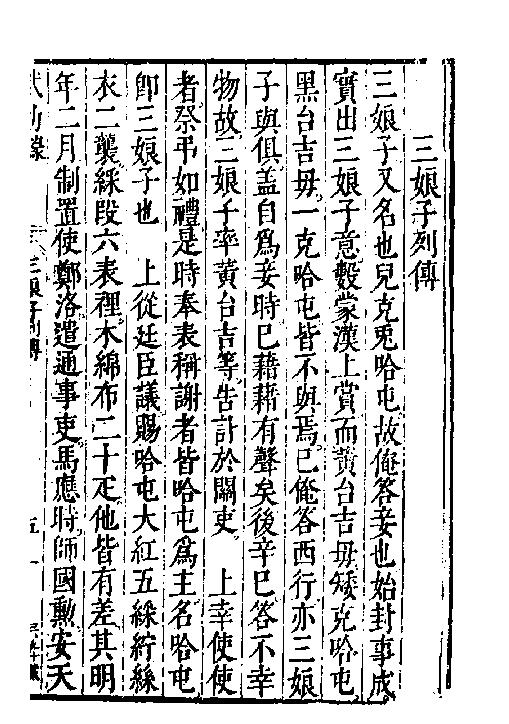 三娘子列傳
三娘子又名也兒克兎哈屯故俺答妾也始封事成
實出三娘子意㝅蒙漢上賞而黃台吉母矮克哈屯
黑台吉母一克哈屯皆不與焉已俺答西行亦三娘
子與俱盖自爲妾時已藉藉有聲矣後辛巳答不幸
物故三娘子率黃台吉等告訃於關吏　上幸使使
者祭弔如禮是時奉表稱謝者皆哈屯爲主名哈屯
卽三娘子也　上從廷臣議賜哈屯大紅五綵紵絲
衣二襲綵段六表裡木綿布二十疋他皆有差其明
年二月制置使鄭洛遣通事吏馬應時師國勳安天
武功錄　三娘子列傳　五